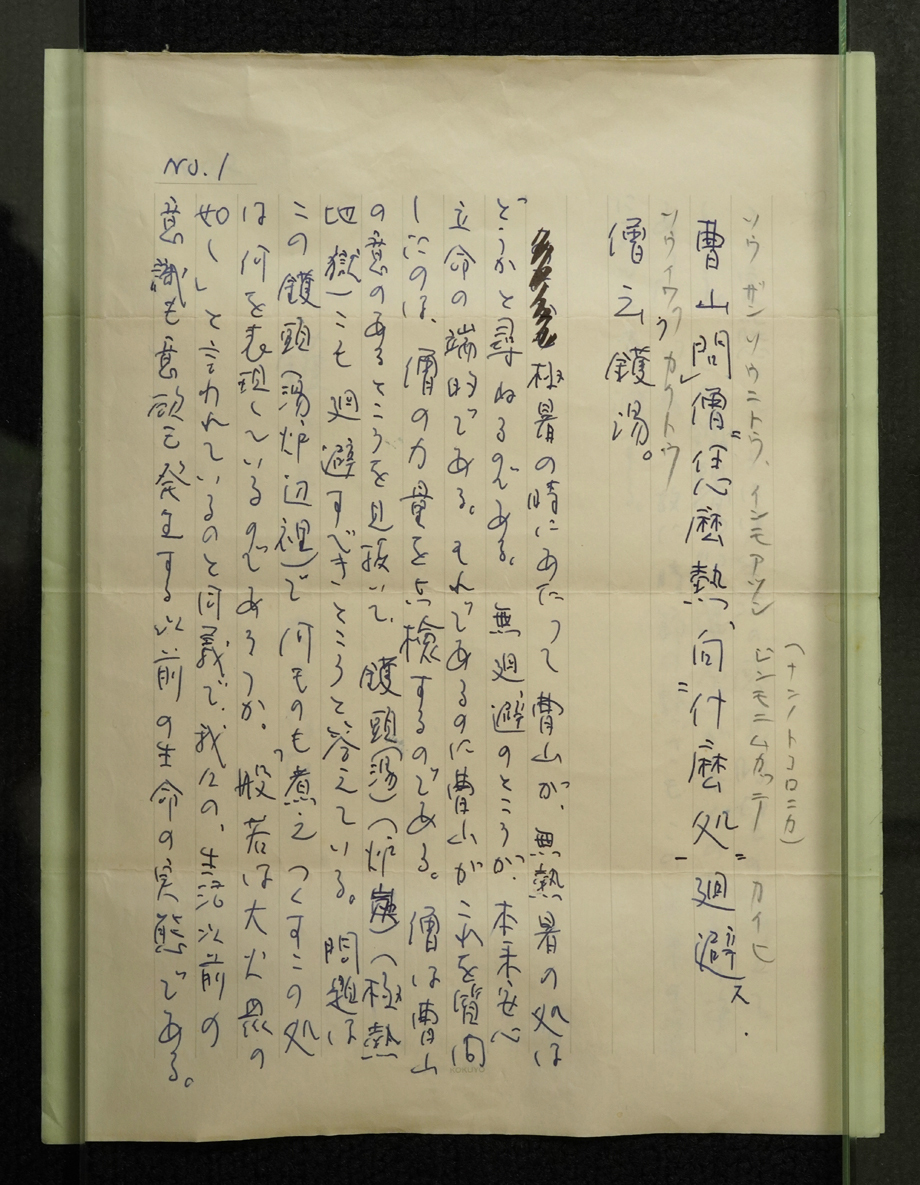 (ナンノトコロニカ)
ソウザンソウニトウ、インモアツシ ジンモニムカッテ カイヒ
曹山問僧恁麽熱、向什麽処廻避ス.
ソウイワク カクトウ
僧云鑊湯。
極暑の時にあたって曹山が、無熱暑の処は
どうかと尋ねるのである。無廻避のところが、本来安心
立命の端的である。それであるのに曹山がこれを質問
したのは、僧の力量を点検するのである。僧は曹山
の意のあるところを見抜いて、鑊頭(湯)(炉炭)(極熱
地獄)こそ廻避すべきところと答えている。問題は
この鑊頭(湯炉辺裡)で何ものも煮えつくすこの処
は何を表現しているのであろうか。「般若は大火聚の
如し」と言われているのと同義で、我々の、生活以前の
意識も意欲も発生する以前の生命の実態である。
NO.1
KOKUYO